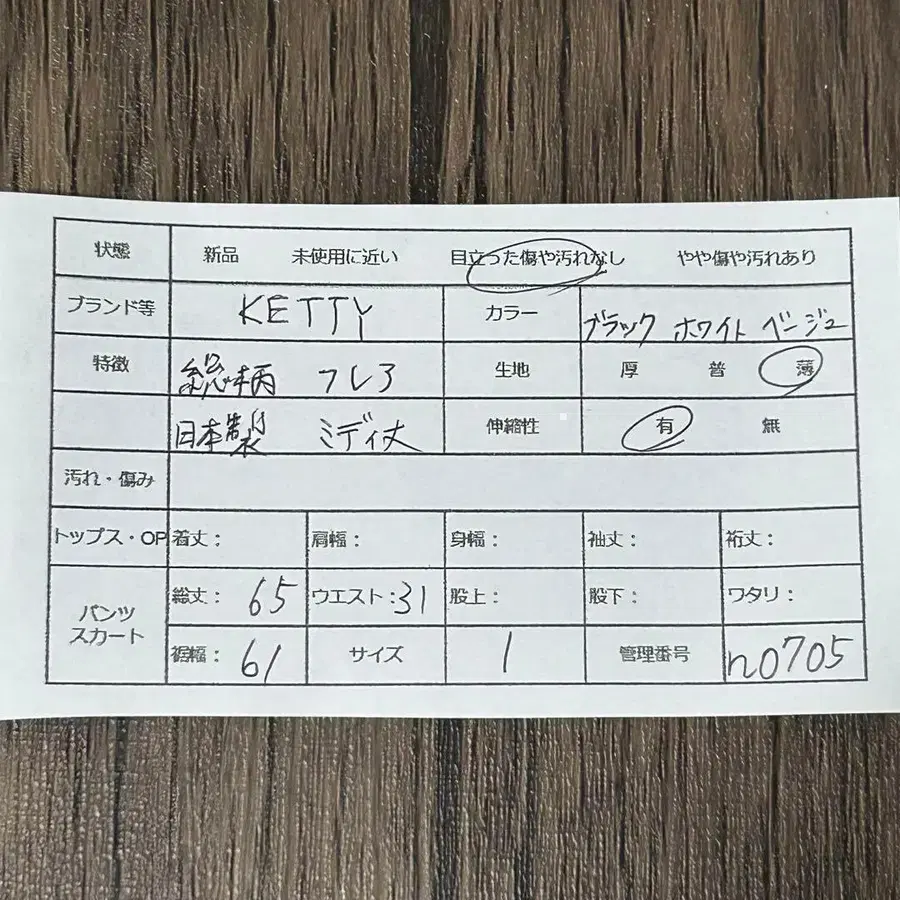 状態 新品 未使用に近い 目立った傷や汚れなし やや傷や汚れあり
ブランド等 KETTY カラー ブラック ホワイト ベージュ
特徴 総柄 フレア 生地 厚 普 薄
日本製 ミディ丈 伸縮性 有 無
汚れ・傷み
トップス・OP 着丈: 肩幅: 身幅: 袖丈: 裄丈:
パンツ スカート 総丈: 65 ウエスト:31 股上: 股下: ワタリ:
裾幅: 61 サイズ 1 管理番号 n0705